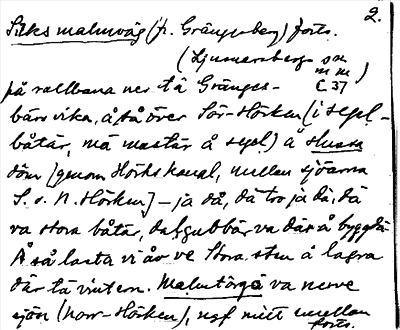 2.
Silks malmväg (fr. Grängesberg) forts.
(Ljusnarsbergs sn
m m)
C 37
på rallbana ner tå Gränges-
bärs vika, å så över Sör-Hörken (i segel-
båtär, mä mastär å segel) å Hussa
döm [genom Hörks kanal, mellan sjöarna
S. o. N. Hörken] – ja då, dä tro ja dä, dä
va stora båtär, dalgubbär va där å byggdä
Å så lasta vi åv ve Stora sten å lagra
där tä vintern. Malmtorgä va nerve
sjön (norr-Hörken), ngt mitt emellan
forts.